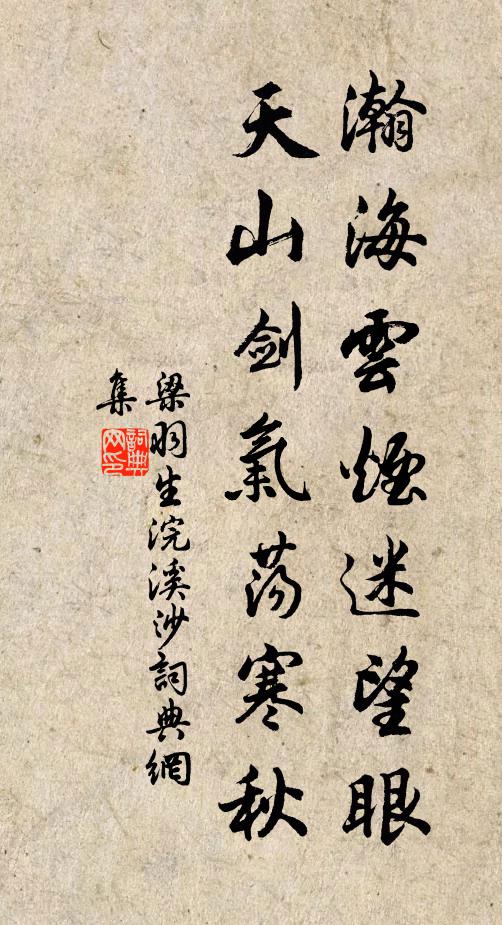 瀚海雲煙迷望眼
天山劍氣蕩寒秋
梁羽生浣溪沙詞典網
集
詞典网印